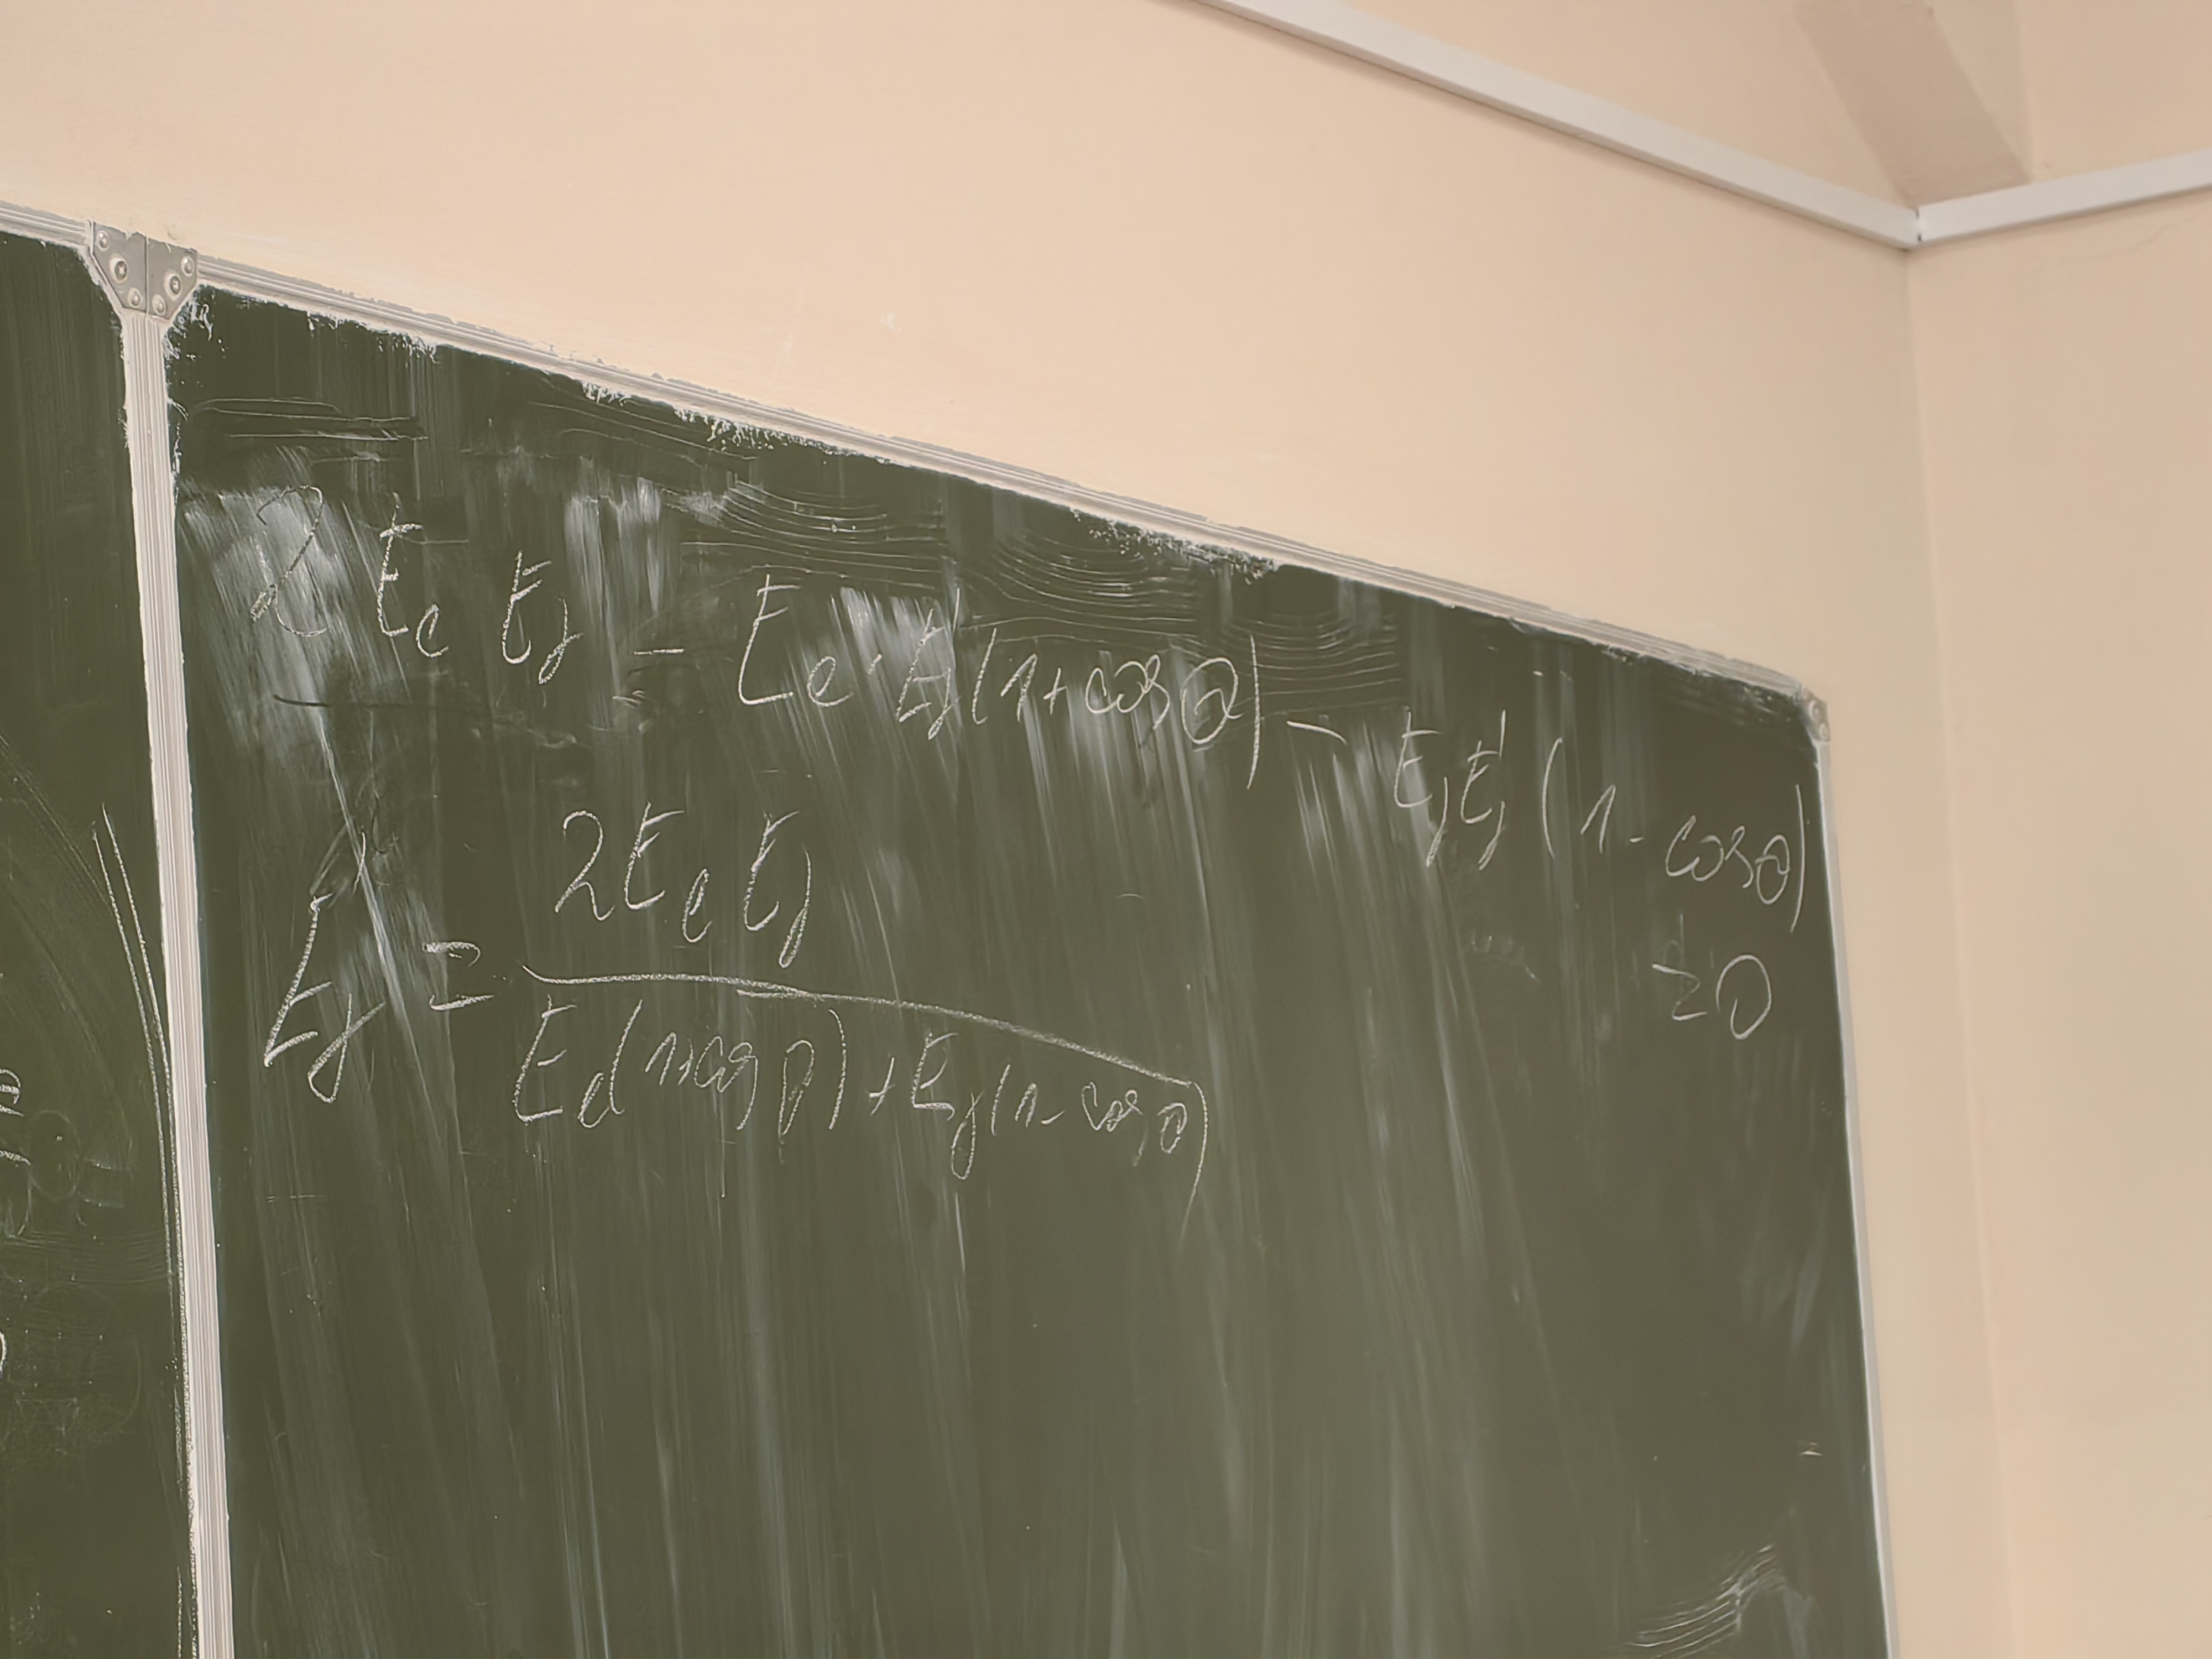 2 E_e E_γ - E_e · E'_γ (1 + cos θ) - E_γ E'_γ (1 - cos θ)
= 0
E'_γ = 2 E_e E_γ / E_e (1 + cos θ) + E_γ (1 - cos θ)